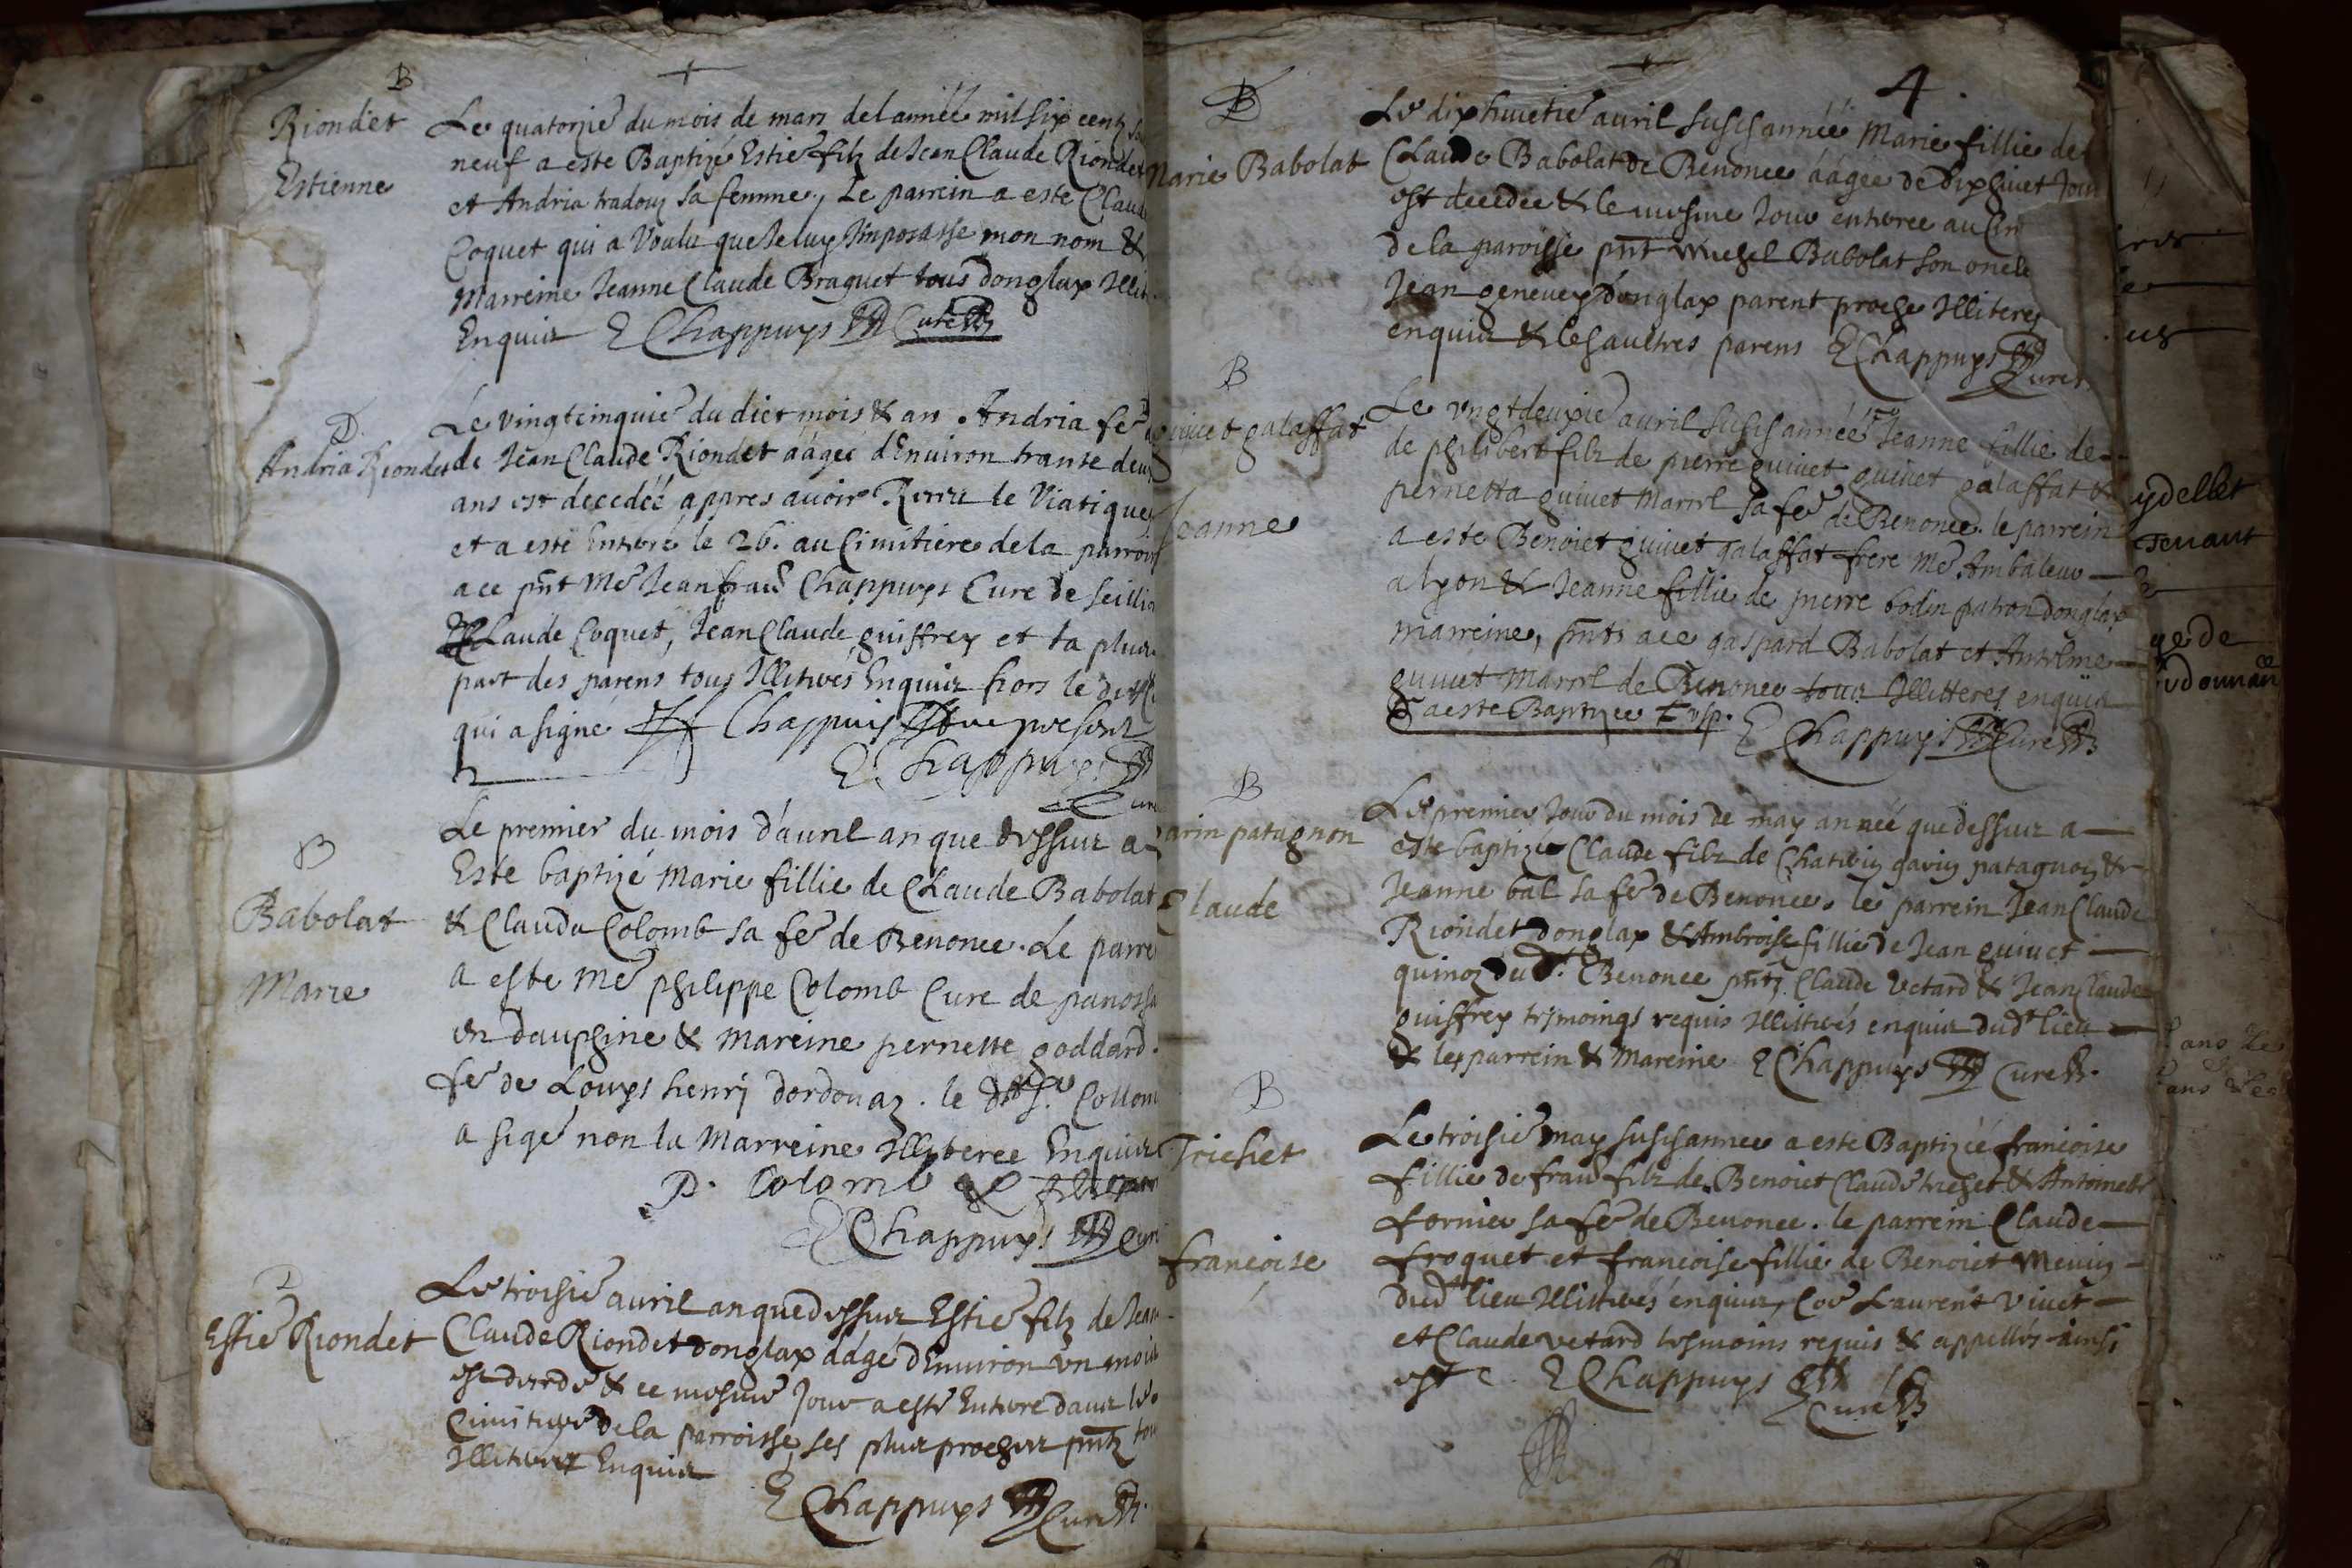 B
Riondet
Estienne
Le quatorzie du mois de mars de lannéé mil six centz
neuf a este Baptizé Estie filz de Jean Claude Riondet
et Andria tradouz sa femme, Le parrein a este Claude
Coquet qui a Voulu que Je luy Imposasse mon nom &
Marreine Jeanne Claude Braguet tous donglax Illit
Enquis E Chappuys Cure
D
Andria Riondet
Le vingtcinquie du dict mois & an Andria fe
de Jean Claude Riondet áágéé dEnuiron trante deux
ans est decedéé appres auoir Receu le Viatique
et a esté Enterré le 26. au Cimitiere de la parrois
a ce pnt Me Jean frans Chappuys Cure de Seillio
Claude Coquet, Jean Claude guiffrey et la plus
part des parens tous Illiterés Enquis hors le dit
qui a signé Chappuis present
E Chappuys
Cure
B
Babolat
Marie
Le premier du mois dauril an que dessus a
Este baptizé Marie fillie de Claude Babolat
& Clauda Colomb sa fe de Benonce. Le parre
a este Me philippe Colomb Cure de panossa
en dauphine & mareine pernette goddard
fe de Louys henri dordonaz. le dt Sr. Collom
a sige non la Marreine Illiteree Enquise
P. Colomb
E Chappuys Cure
D
Estie Riondet
Le troisie auril an que dessus Estie filz de Jean
Claude Riondet donglax áágé dEnuiron vn mois
est decedé & ce mesme Jour a esté Enterré dans le
Cimitiere de la parroisse, ses plus proches pntz tous
Illiterez Enquis
E Chappuys Cure
4
D
Marie Babolat
Le dixhuictie auril susd année Marie fillie de
Claude Babolat de Benonce áágéé de dix huict Jours
est decedee & le mesme Jour enterree au Cim
de la paroisse pnt Michel Babolat son oncle
Jean geneuey donglax parent proche Illiteres
enquis & les aultres parens E Chappuys
Cure
B
guiuet galaffat
Jeanne
Le vngtdeuxie auril susd année Jeanne fillie de
de philibert filz de pierre guiuet guiuet galaffat &
pernetta guiuet Marrel sa fe de Benonce. le parrein
a este Benoict guiuet galaffat frere Me Ambaleur
a lyon & Jeanne fillie de pierre bodin patron donglax
marreine, pnts a ce gaspard Babolat et Antelme
guiuet Marrel de Benonce tous Illitteres enquis
a este Baptizee E Chappuys Cure
B
garin patagnon
Claude
Le premier Jour du mois de may année que dessus a
este baptizé Claude filz de Chatelin garin patagnon &
Jeanne bal sa fe de Benonce. le parrein Jean Claude
Riondet donglax & Ambroise fillie de Jean guiuet
quinoz du dt. Benonce pntz Claude Vetard & Jean Claude
guiffrey tesmoings requis Illiterés enquis dudt lieu
& les parrein & Mareine E Chappuys Cure
B
Trichet
francoise
Le troisie may susd annee a este Baptizéé francoise
fillie de frans filz de Benoict Claude trichet & Antoinette
fornier sa fe de Benonce. le parrein Claude
froquet et francoise fillie de Benoict Menin
dudt lieu Illiterés enquis, Laurent Viuet
et Claude vetard tesmoins requis & appellés ainsi
est E Chappuys
Cure
ydellet
ge de
ans
ans